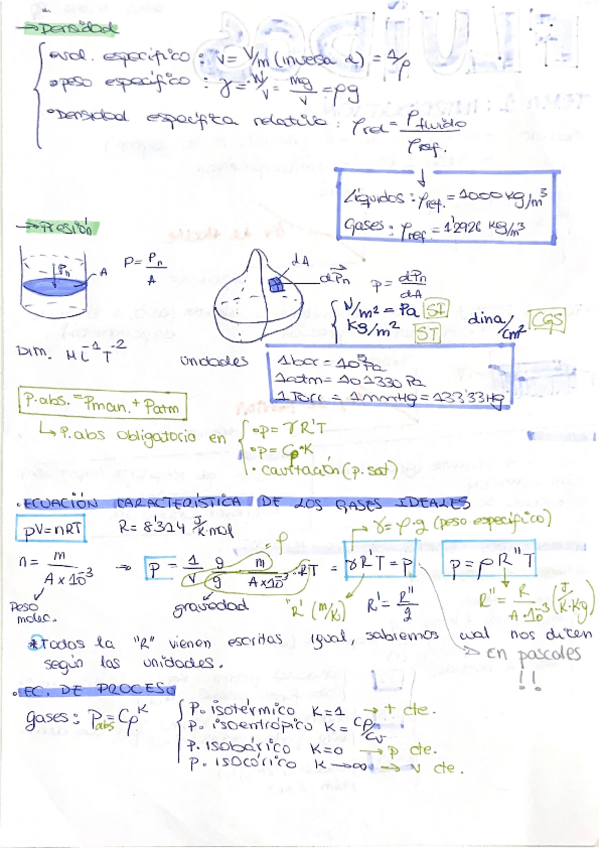 → Densidad
• vol. específico : v = V/m (inversa d) = 1/ρ
• peso específico : γ = W/V = mg/V = ρg
• Densidad específica relativa : ρrel = ρfluido/ρref.
Líquidos : ρref. = 1000 kg/m³
Gases : ρref = 1'2926 kg/m³
→ Presión
Pn A P = Pn/A dA dPn p = dPn/dA
N/m² = Pa SI dina/cm² CGS
Kg/m² ST
DIM. ML⁻¹T⁻² unidades
1 bar = 10⁵ Pa
1 atm = 101330 Pa
1 Torr = 1mmHg = 133'33Hg
P.abs. = Pman. + Patm
↳ P.abs obligatorio en
• p = γR'T
• p = Cρ^K
• cavitación (p. sat)
• ECUACIÓN CARACTERÍSTICA DE LOS GASES IDEALES
pV = nRT R = 8'314 J/K·mol → γ = ρ·g (peso específico)
n = m/A×10⁻³ → P = 1/V g/g m/A×10⁻³ · RT = γR'T = p p = ρR''T
= ρ
Peso molec. gravedad "R' (m/K) R' = R''/g R'' = R/A·10⁻³ (J/K·Kg)
*Todos la "R" vienen escritas igual, sabremos cual nos dicen
según las unidades. → en pascales !!
• EC. DE PROCESO
gases : Pabs = Cρ^K
P. isotérmico K=1 → t cte.
P. isoentrópico K = Cp/Cv
P. isobárico K=0 → p cte.
P. isocórico K→∞ → v cte.